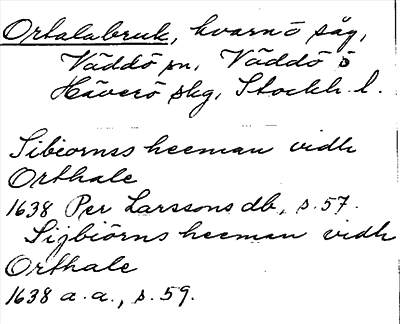 Ortalabruk, kvarn o såg,
Väddö sn, Väddö o
Häverö skg, Stockh. l.
Sibiornss heeman vidh
Orthale
1638 Per Larssons db, s. 57.
Sijbiörns heeman vidh
Orthale
1638 a.a., s. 59.